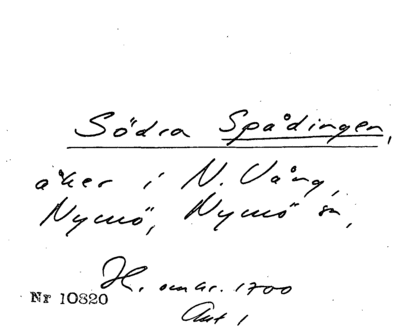 Södra Spådingen,
åker i N. Vång,
Nymö, Nymö sn,
H. omkr. 1700
Nr 10820
Akt 1